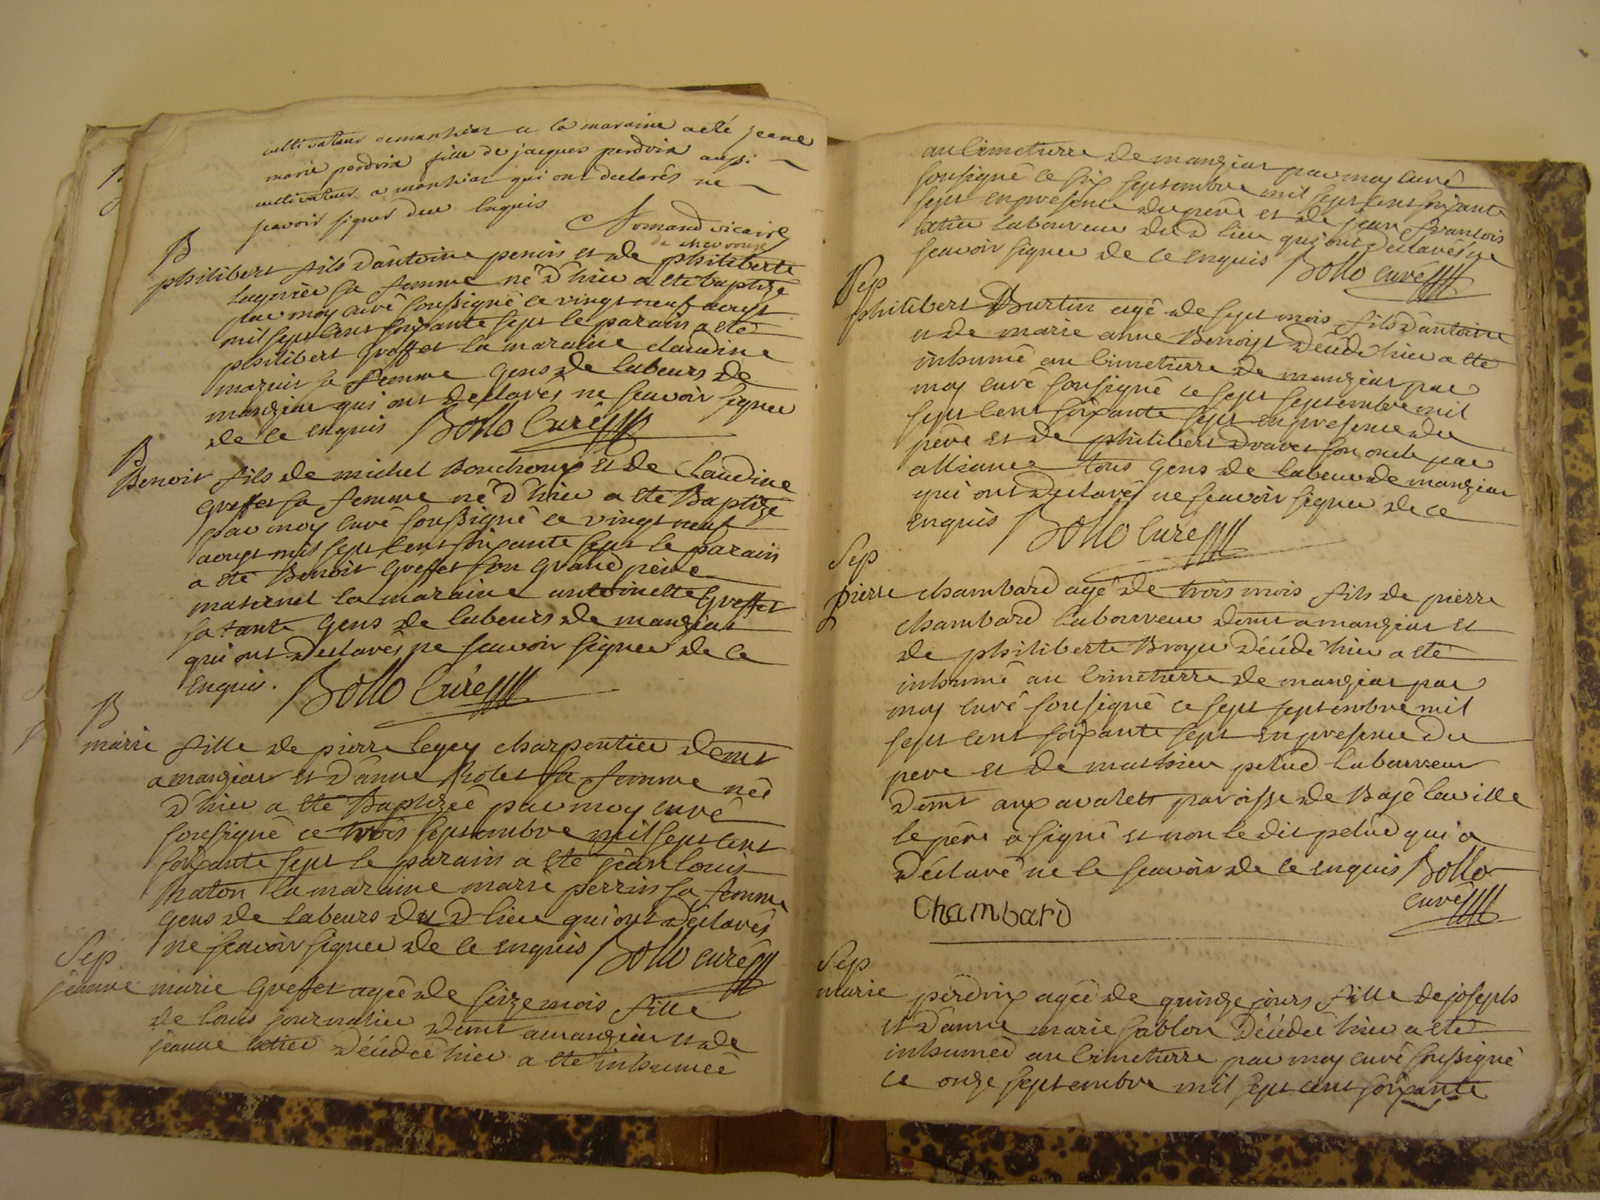 cultivateur a manziat et la maraine a eté jeane
marie perdrix fille de jacques perdrix aussi
cultivateur a manziat qui ont declarés ne
scavoir signer deu enquis
vicaire
de chevroux
B
philibert fils d'antoine penin et de philiberte
sa femme né d'hier a eté baptizé
par moy curé soussigné ce vingt neuf aoust
mil sept cent soixante sept le parain a eté
philibert greffet la maraine claudine
sa femme gens de labeurs de
manziat qui ont declarés ne scavoir signer
de ce enquis Bollo Curé
B
Benoit fils de michel Bouchoux et de Claudine
Greffet sa femme né d'hier a eté Baptizé
par moy curé soussigné ce vingt neuf
aoust mil sept cent soixante sept le parain
a eté Benoit Greffet son grand pere
maternel la maraine antoinette Greffet
sa tante gens de labeurs de manziat
qui ont declarés ne scavoir signer de ce
enquis. Bollo Curé
B
marie fille de pierre charpentier demt
a manziat et d'anne sa femme née
d'hier a eté Baptizée par moy curé
sousigné ce trois septembre mil sept cent
soixante sept le parain a eté jean louis
la maraine marie perrin sa femme
gens de labeurs du d lieu qui ont declarés
ne scavoir signer de ce enquis Bollo curé
Sep
jeanne marie Greffet agée de seize mois fille
de louis journalier demt a manziat et de
jeanne décédée hier a eté inhumée
au cimetierre de manziat par moy curé
sousigné ce six septembre mil sept cent soixante
sept en presence du pere et de jean francois
laboureur du d lieu qui ont declarés ne
scavoir signer de ce enquis Bollo curé
Sep
philibert Burtin agé de sept mois fils d'antoine
et de marie anne Benoist décédé hier a eté
inhumé au cimetierre de manziat par
moy curé sousigné ce sept septembre mil
sept cent soixante sept en presence du
pere et de philibert son oncle par
alliance tous gens de labeur de manziat
qui ont declarés ne scavoir signer de ce
enquis Bollo Curé
Sep
pierre chambard agé de trois mois fils de pierre
chambard laboureur demt a manziat et
de philiberte Broyer décédé hier a eté
inhumé au cimetierre de manziat par
moy curé sousigné ce sept septembre mil
sept cent soixante sept en presence du
pere et de mathieu pelud laboureur
demt aux avalets paroisse de Bagé la ville
le pere a signé et non le dit pelud qui a
déclaré ne le scavoir de ce enquis Bollo
curé
Chambard
Sep
marie perdrix agée de quinze jours fille de joseph
et d'anne marie sablon décédée hier a eté
inhumée au cimetierre par moy curé soussigné
ce onze septembre mil sept cent soixante